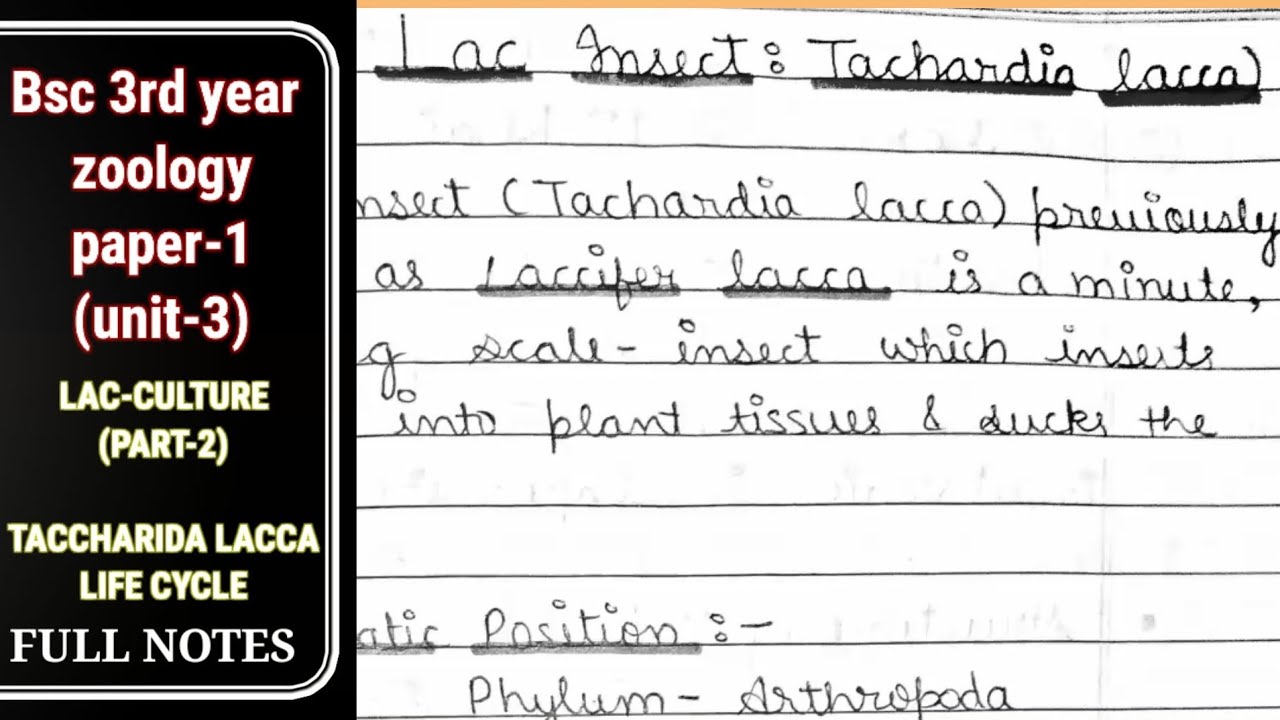 Bsc 3rd year
zoology
paper-1
(unit-3)
LAC-CULTURE
(PART-2)
TACCHARIDA LACCA
LIFE CYCLE
FULL NOTES
Lac Insect: Tachardia lacca)
nsect (Tachardia lacca) previously
as Laccifer lacca is a minute,
g scale-insect which inserts
into plant tissues & sucks the
atic Position :-
Phylum- Arthropoda